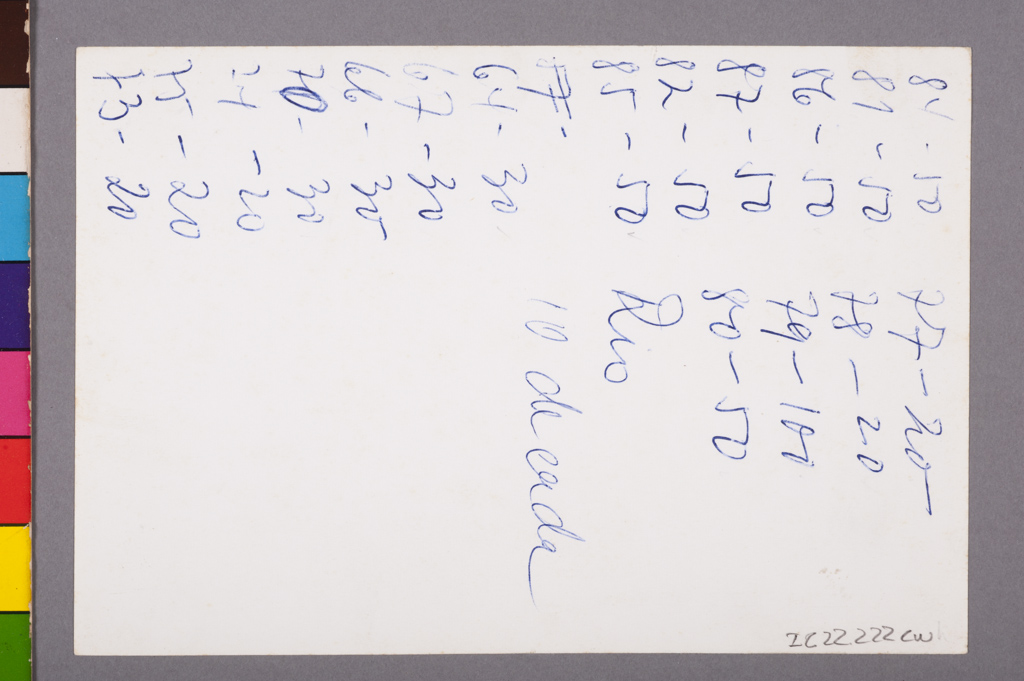 84 - 50
81 - 50
86 - 50
87 - 50
82 - 50
85 - 50
77 -
64 - 30
67 - 30
66 - 30
70 - 30
74 - 20
75 - 20
73 - 20
77 - 20
78 - 20
79 - 100
80 - 50
Rio
10 de cada
IC22222cw